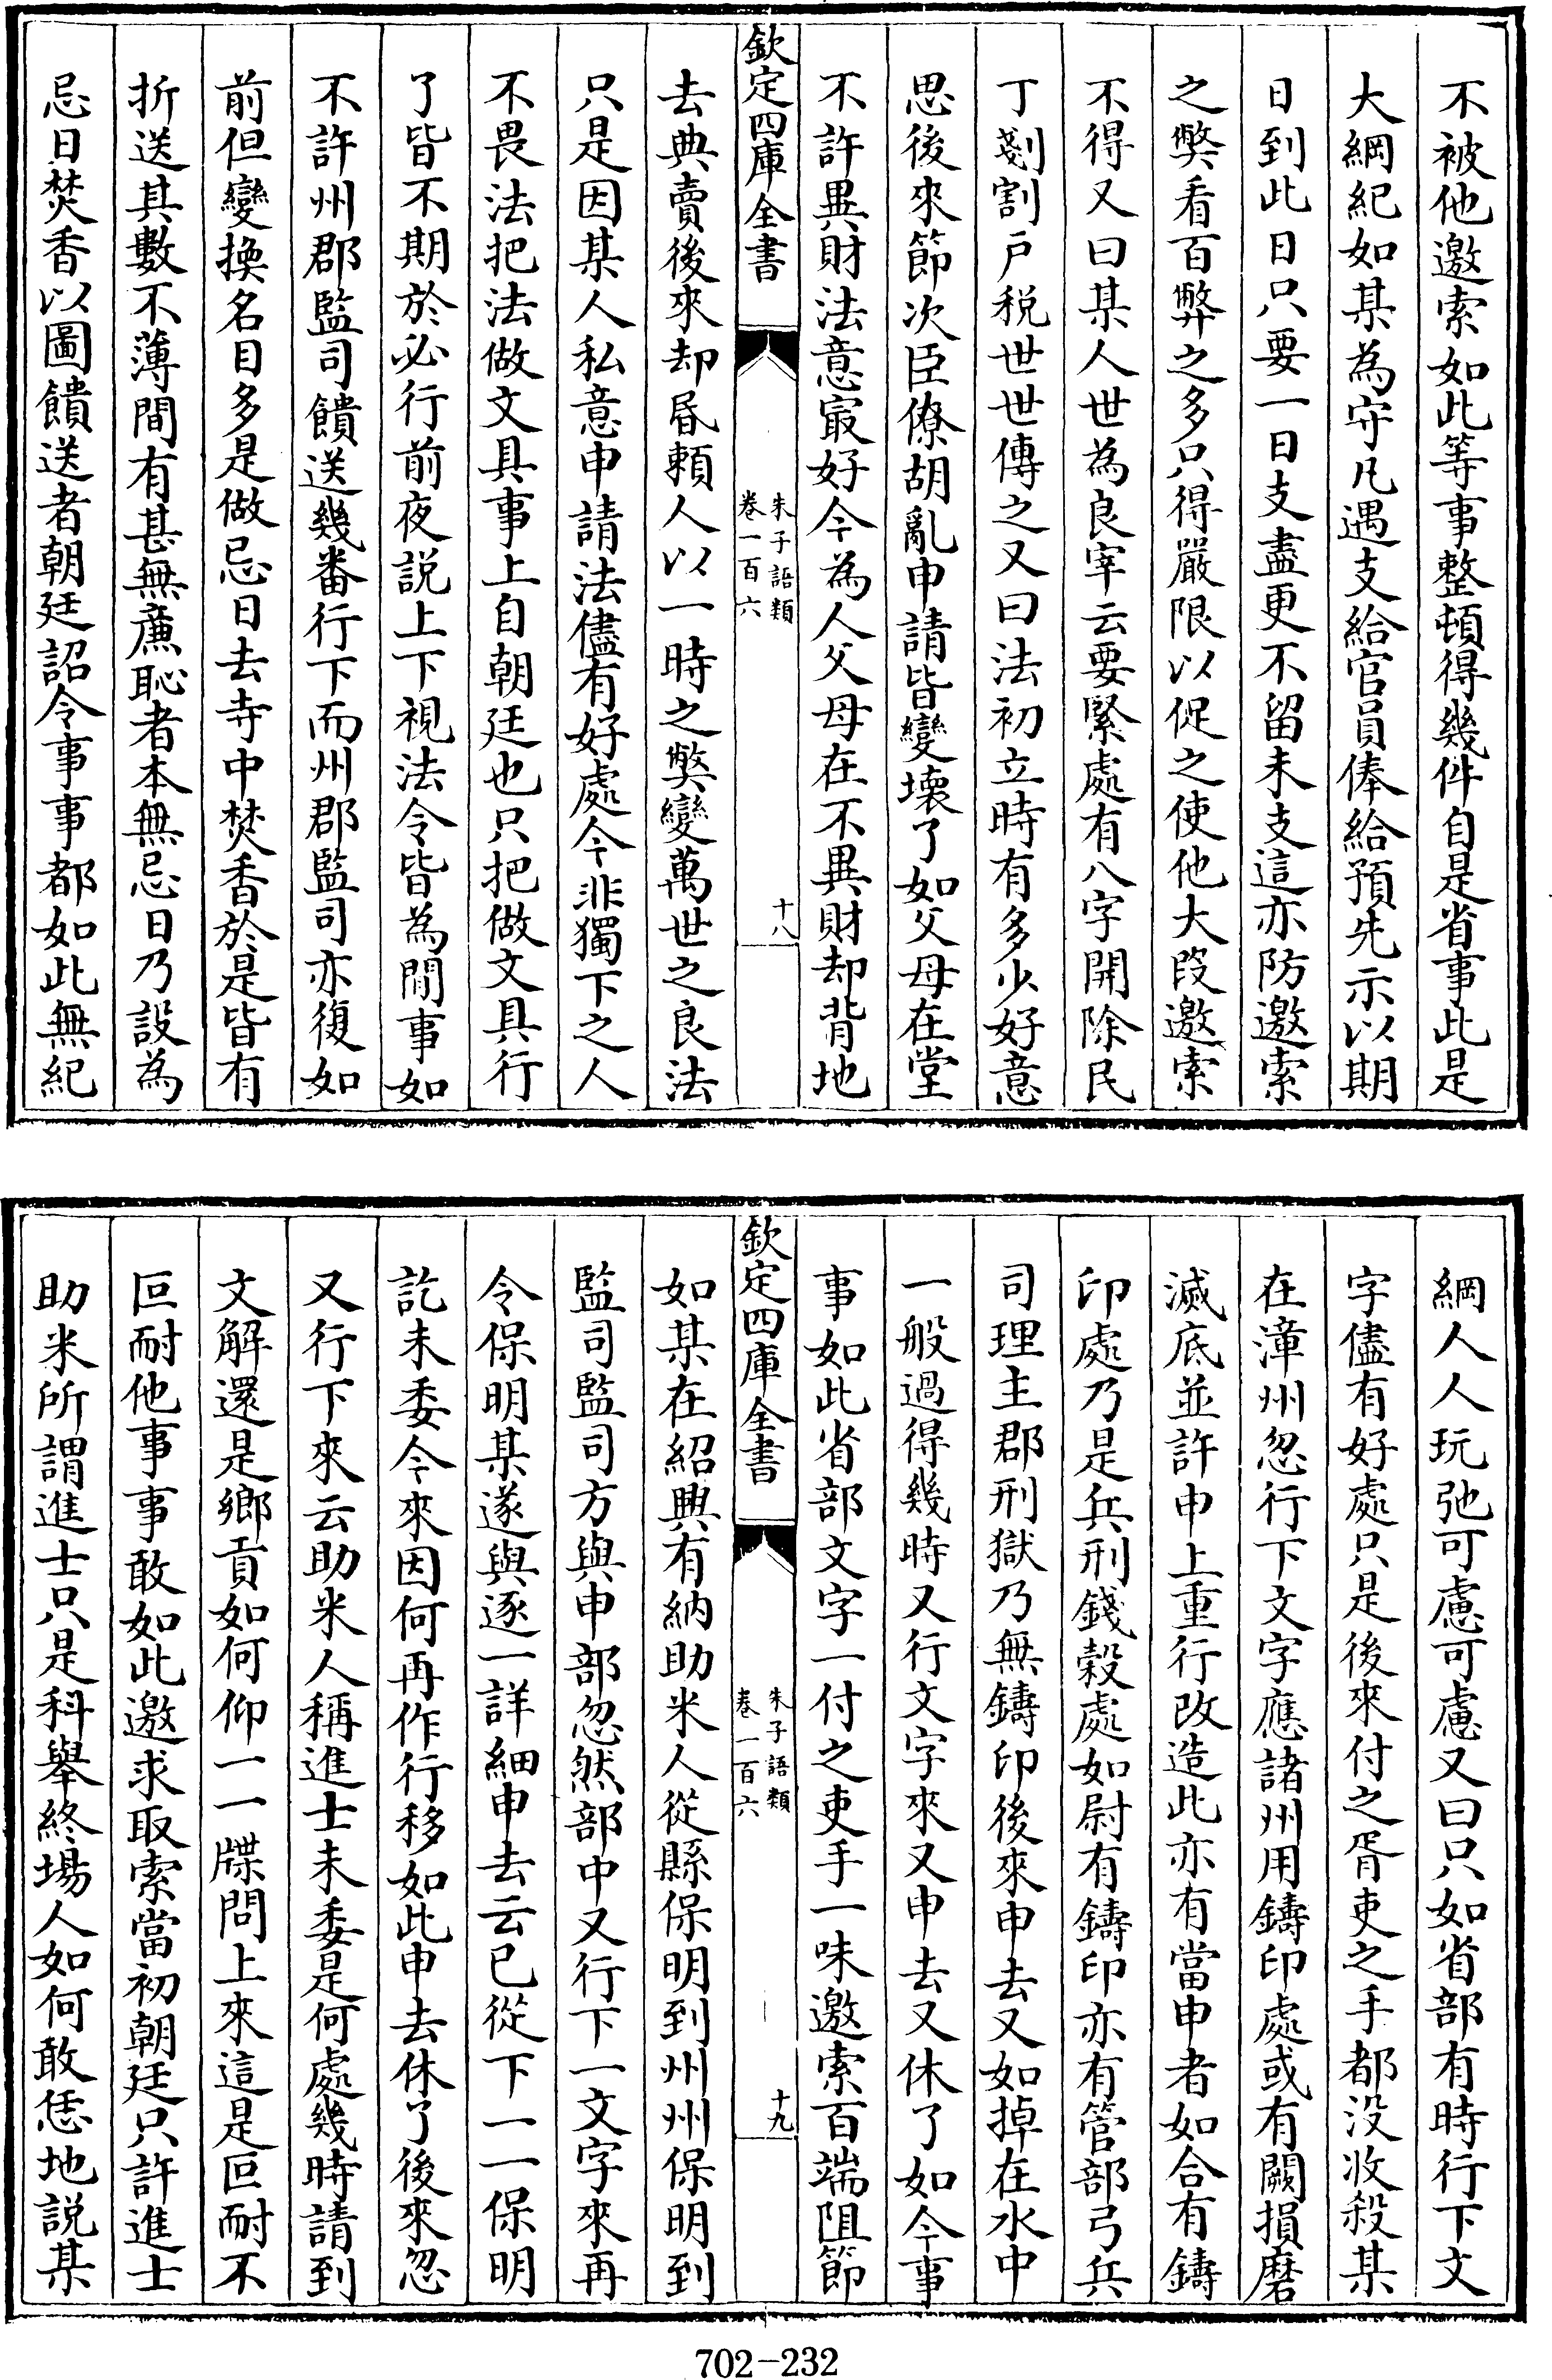 不被他邀索如此等事整頓得幾件自是省事此是
大綱紀如某為守凡遇支給官員俸給預先示以期
日到此日只要一日支盡更不留未支這亦防邀索
之弊看百弊之多只得嚴限以促之使他大段邀索
不得又曰某人世為良宰云要緊處有八字開除民
丁剗割户税世世傳之又曰法初立時有多少好意
思後來節次臣僚胡亂申請皆變壞了如父母在堂
不許異財法意寂好今為人父母在不異財却背地
欽定四庫全書
朱子語類
卷一百六
十八
去典賣後來却昏賴人以一時之弊變萬世之良法
只是因某人私意申請法儘有好處今非獨下之人
不畏法把法做文具事上自朝廷也只把做文具行
了皆不期於必行前夜説上下視法令皆為閒事如
不許州郡監司饋送幾番行下而州郡監司亦復如
前但變換名目多是做忌日去寺中焚香於是皆有
折送其數不薄間有甚無亷恥者本無忌日乃設為
忌日焚香以圖饋送者朝廷詔令事事都如此無紀
綱人人玩弛可慮可慮又曰只如省部有時行下文
字儘有好處只是後來付之胥吏之手都没收殺某
在漳州忽行下文字應諸州用鑄印處或有闕損磨
滅底並許申上重行改造此亦有當申者如合有鑄
印處乃是兵刑錢穀處如尉有鑄印亦有管部弓兵
司理主郡刑獄乃無鑄印後來申去又如掉在水中
一般過得幾時又行文字來又申去又休了如今事
事如此省部文字一付之吏手一味邀索百端阻節
欽定四庫全書
朱子語類
卷一百六
十九
如某在紹興有納助米人從縣保明到州州保明到
監司監司方與申部忽然部中又行下一文字來再
令保明某遂與逐一詳細申去云已從下一一保明
訖未委今來因何再作行移如此申去休了後來忽
又行下來云助米人稱進士未委是何處幾時請到
文解還是鄉貢如何仰一一牒問上來這是叵耐不
叵耐他事事敢如此邀求取索當初朝廷只許進士
助米所謂進士只是科舉終場人如何敢恁地説某
702-232